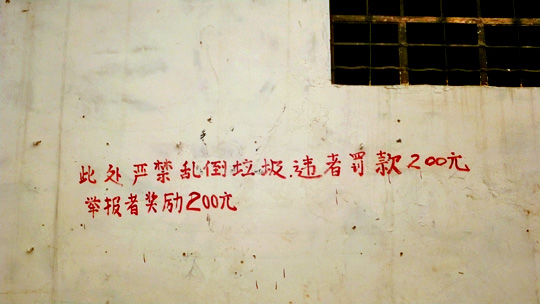 此处严禁乱倒垃圾.违者罚款200元
举报者奖励200元